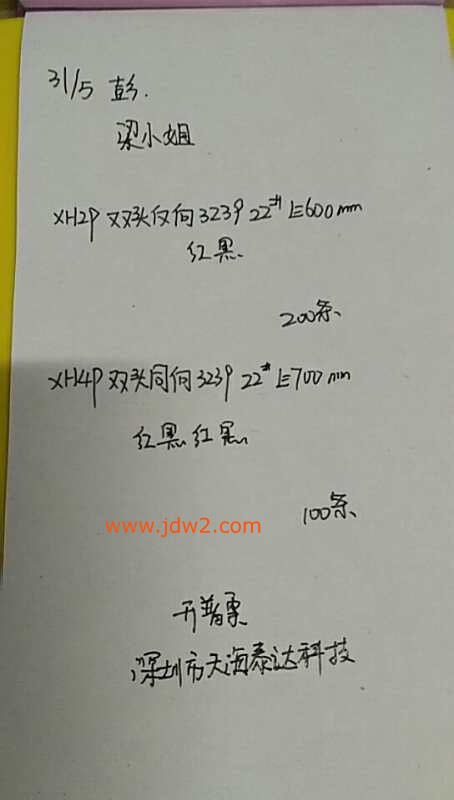 31/5 彭.
梁小姐
XH2P 双头反向 3239 22# L=600mm
红黑
200条
XH4P 双头同向 3239 22# L=700mm
红黑红黑
100条
www.jdw2.com
开普票
深圳市天海泰达科技